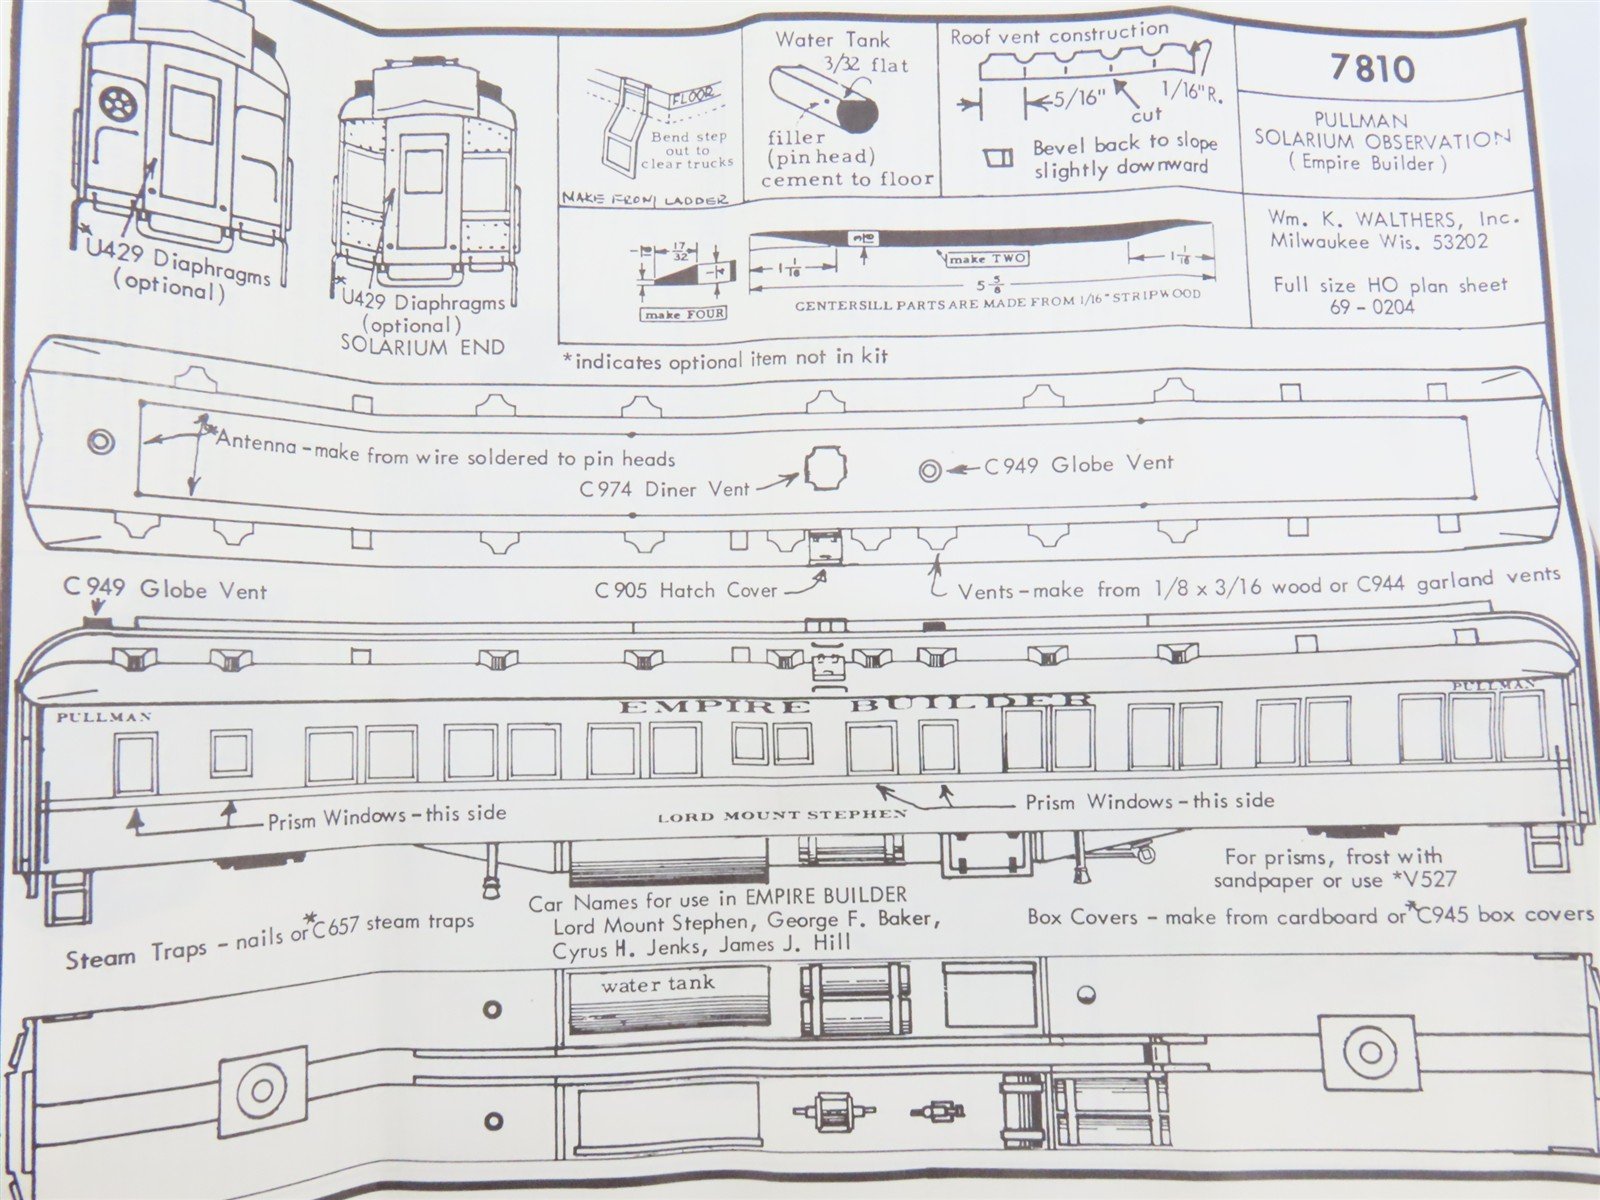 *U429 Diaphragms
(optional)
*U429 Diaphragms
(optional)
SOLARIUM END
FLOOR
Bend step
out to
clear trucks
MAKE FROM LADDER
Water Tank
3/32 flat
filler
(pin head)
cement to floor
Roof vent construction
5/16"
1/16"R.
cut
Bevel back to slope
slightly downward
7810
PULLMAN
SOLARIUM OBSERVATION
(Empire Builder)
Wm. K. WALTHERS, Inc.
Milwaukee Wis. 53202
Full size HO plan sheet
69-0204
17/32
make FOUR
1 1/16
make TWO
1 1/16
5 5/8
CENTERSILL PARTS ARE MADE FROM 1/16" STRIPWOOD
*indicates optional item not in kit
*Antenna-make from wire soldered to pin heads
C974 Diner Vent
C949 Globe Vent
C949 Globe Vent
C905 Hatch Cover
Vents-make from 1/8 x 3/16 wood or C944 garland vents
PULLMAN
EMPIRE BUILDER
PULLMAN
Prism Windows-this side
LORD MOUNT STEPHEN
Prism Windows-this side
For prisms, frost with
sandpaper or use *V527
Steam Traps - nails or *C657 steam traps
Car Names for use in EMPIRE BUILDER
Lord Mount Stephen, George F. Baker,
Cyrus H. Jenks, James J. Hill
Box Covers - make from cardboard or *C945 box covers
water tank